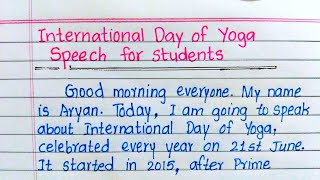 International Day of Yoga
Speech for students
Good morning everyone. My name
is Aryan. Today, I am going to speak
about International Day of Yoga,
celebrated every year on 21st June.
It started in 2015, after Prime